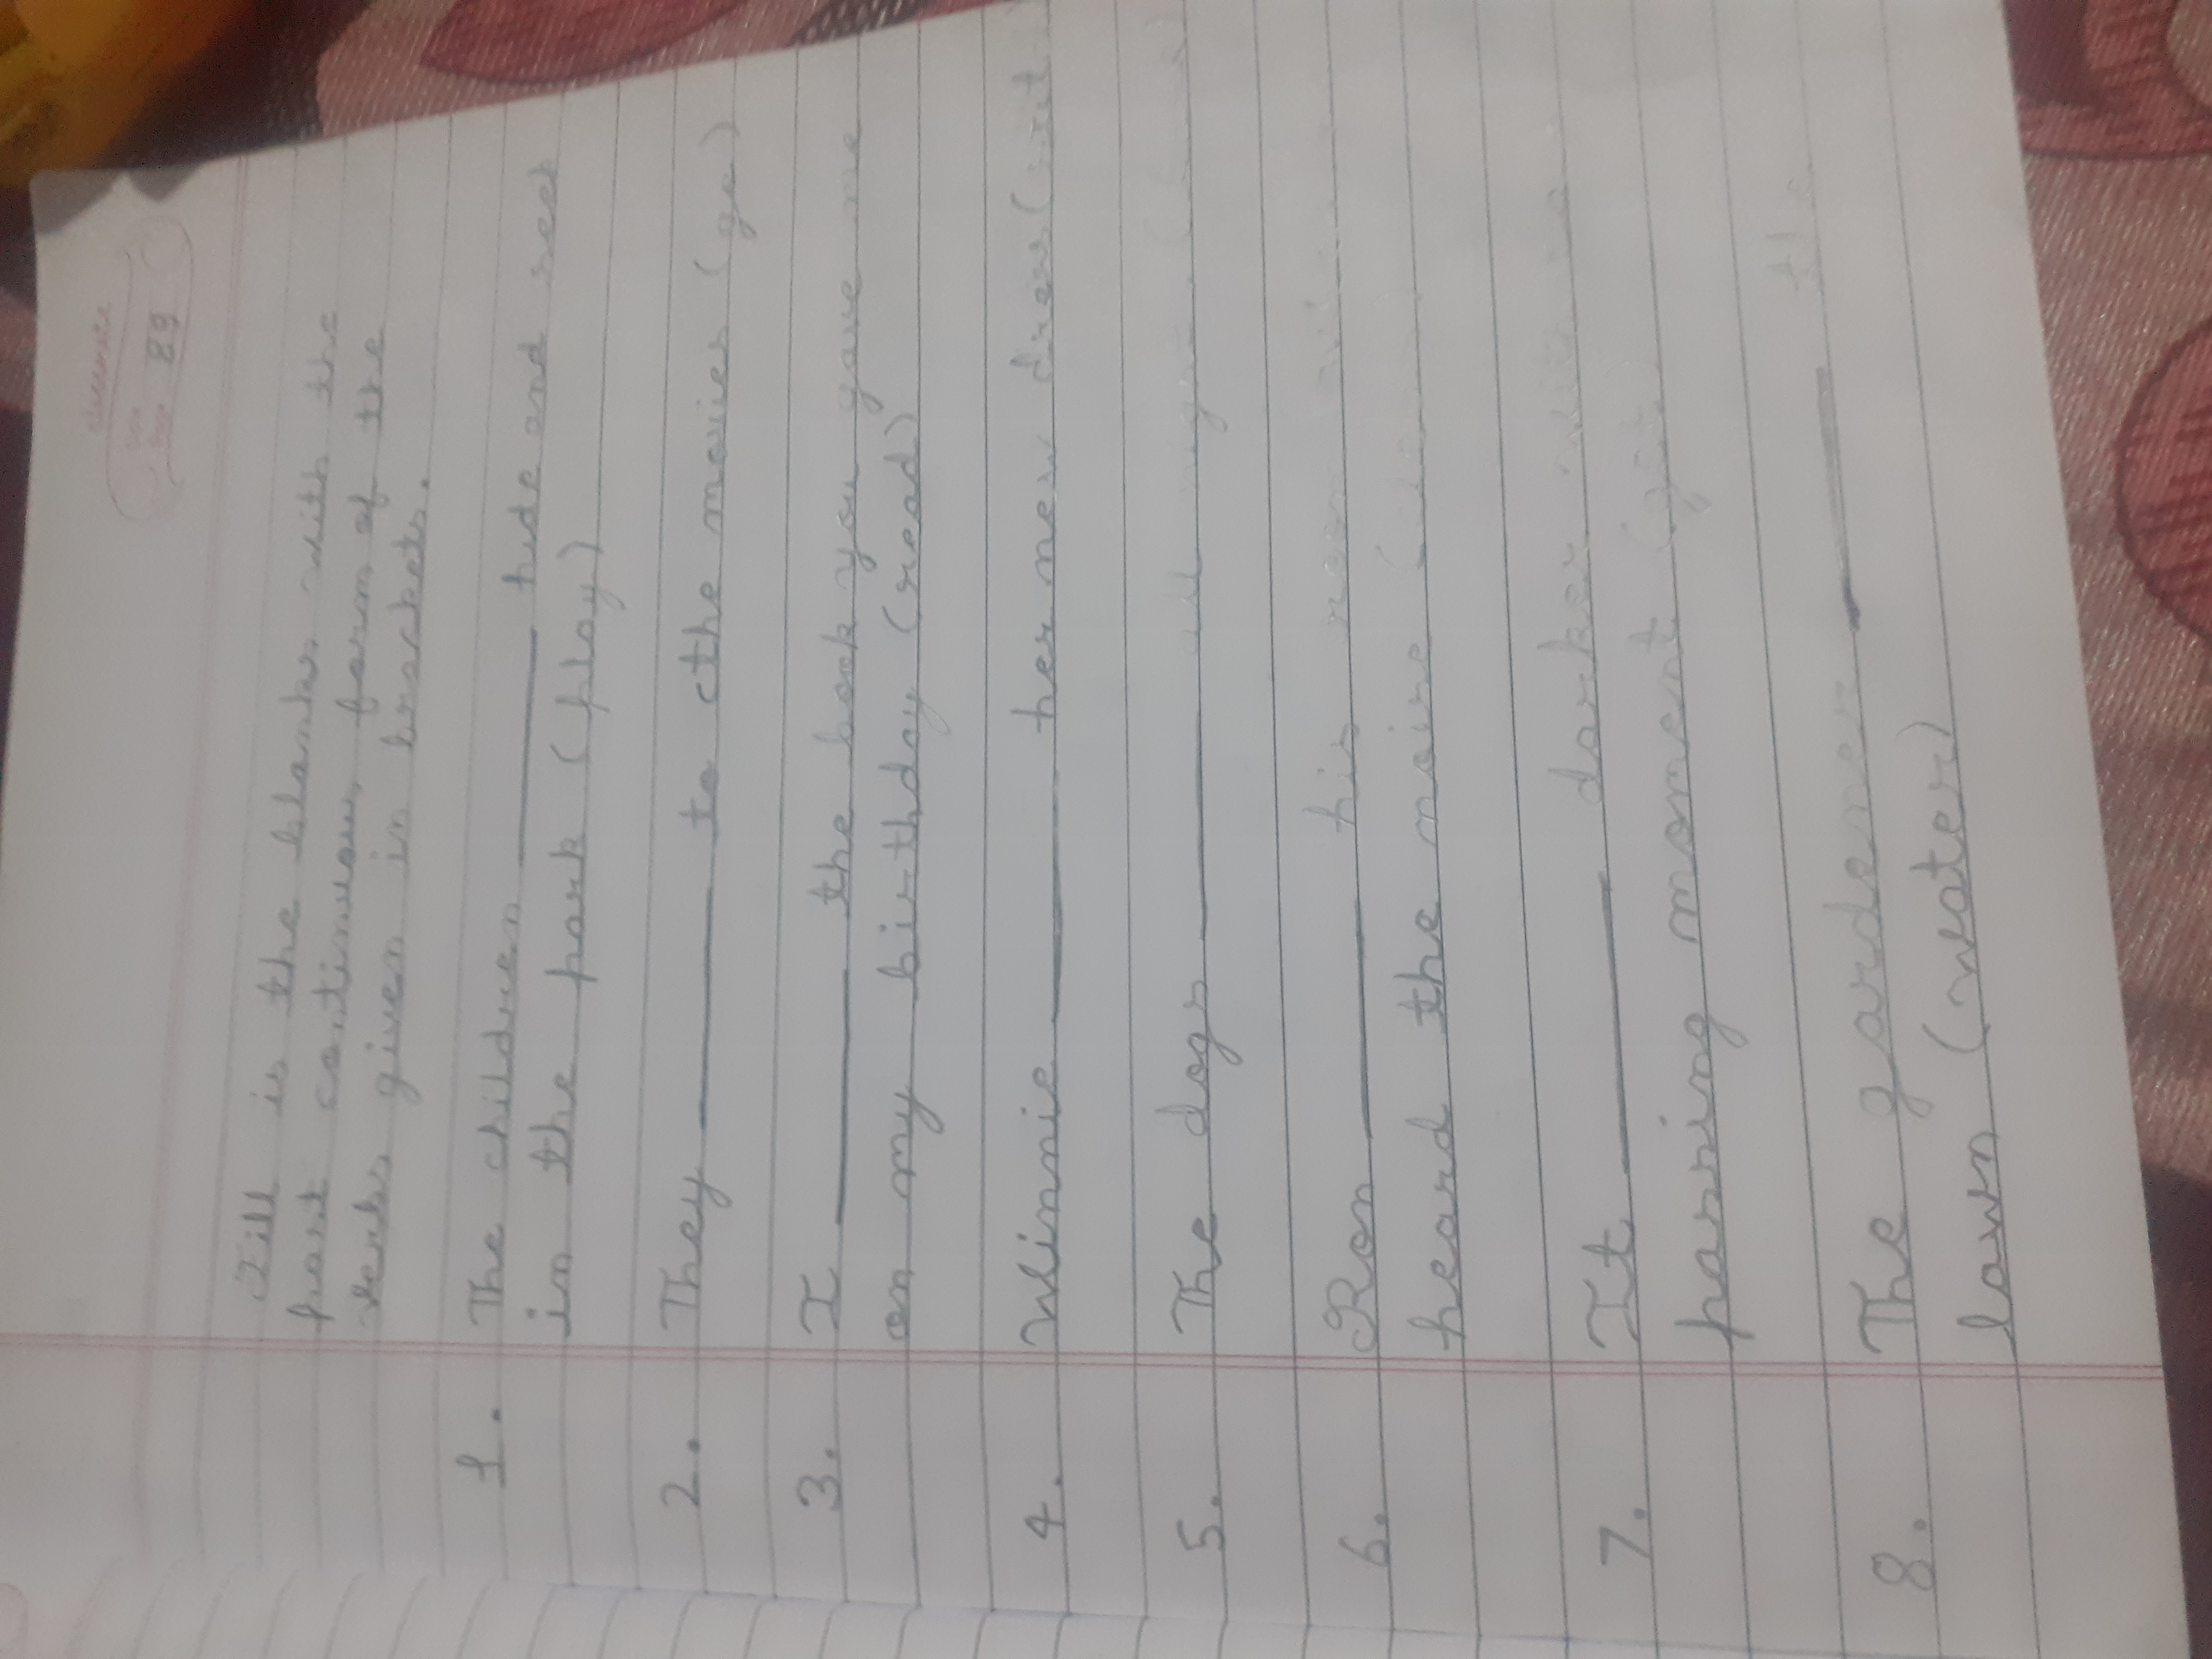 89
Fill is the blanks with the
past continuous form of the
verbs given in brackets.
1. The children ____ hide and seek
in the park (play)
2. They ____ to the movies (go)
3. I ____ the book you gave me
on my birthday (read)
4. Winnie ____ her new dress (
5. The dogs ____ all
6. Ron ____ his room
heard the noise (
7. It ____ darker with
passing moment (get)
8. The gardener ____ the
lawn (water)